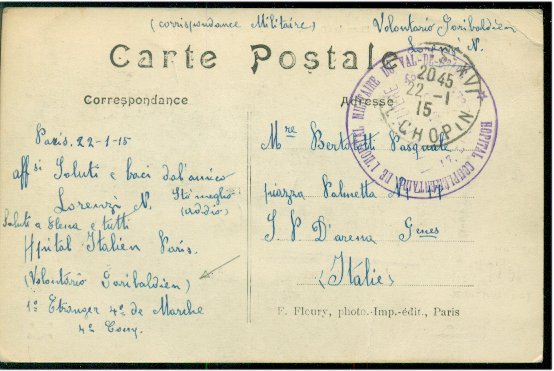 (corrispondance Militaire)
Volontario Garibaldien
Lorenzi N.
Carte Postale
Correspondance
Adresse
HOPITAL COMPLEMENTAIRE DE L'HOPITAL MILITAIRE DU VAL-DE-GRACE
XVI
2045
22-1
15
CHOPIN
Paris. 22-1-15
aff si Saluti e baci dal'amico
Lorenzi N. Sto meglio
(addio)
Saluti a Elena e tutti
Hpital Italien Paris.
(Volontario Garibaldien)
1º Etranger 4º de Marche
4º Comp.
Mre Bertolotti Pasquale
piazza
S. P D'arena Gnes
(Italie)
F. Fleury, photo.-Imp.-édit., Paris